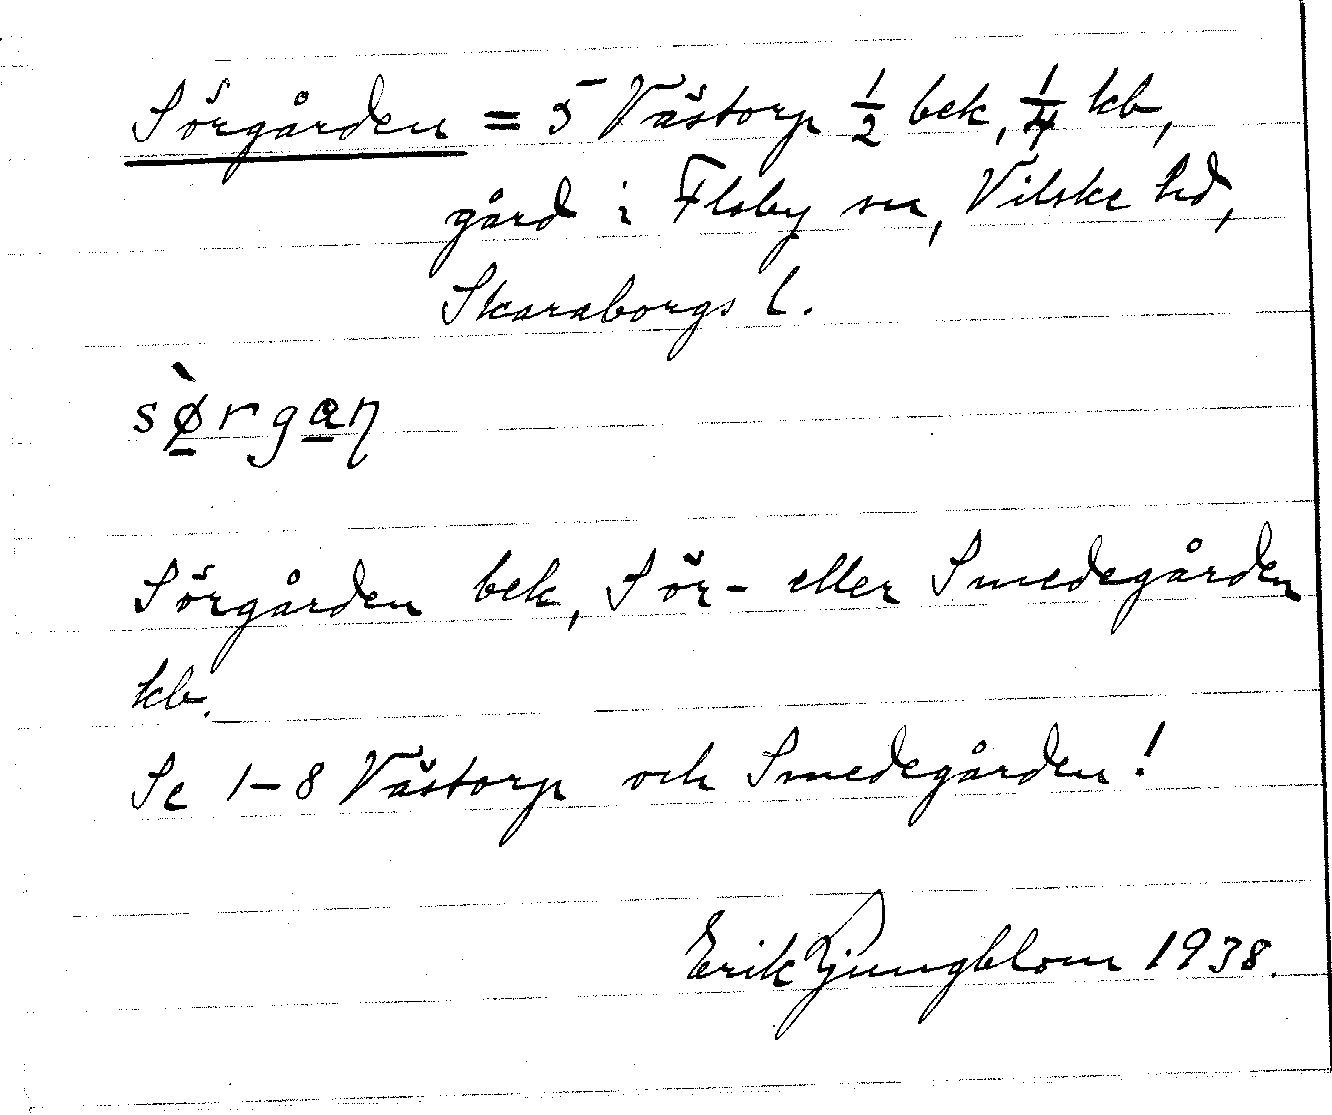 Sörgården = 5 Västorp 1/2 bek, 1/4 kb,
gård i Floby sn, Vilske hd,
Skaraborgs l.
sø̠̀rga̠ɳ
Sörgården bek, Sör- eller Smedegården
kb.
Se 1-8 Västorp och Smedegården!
Erik Ljungblom 1938.